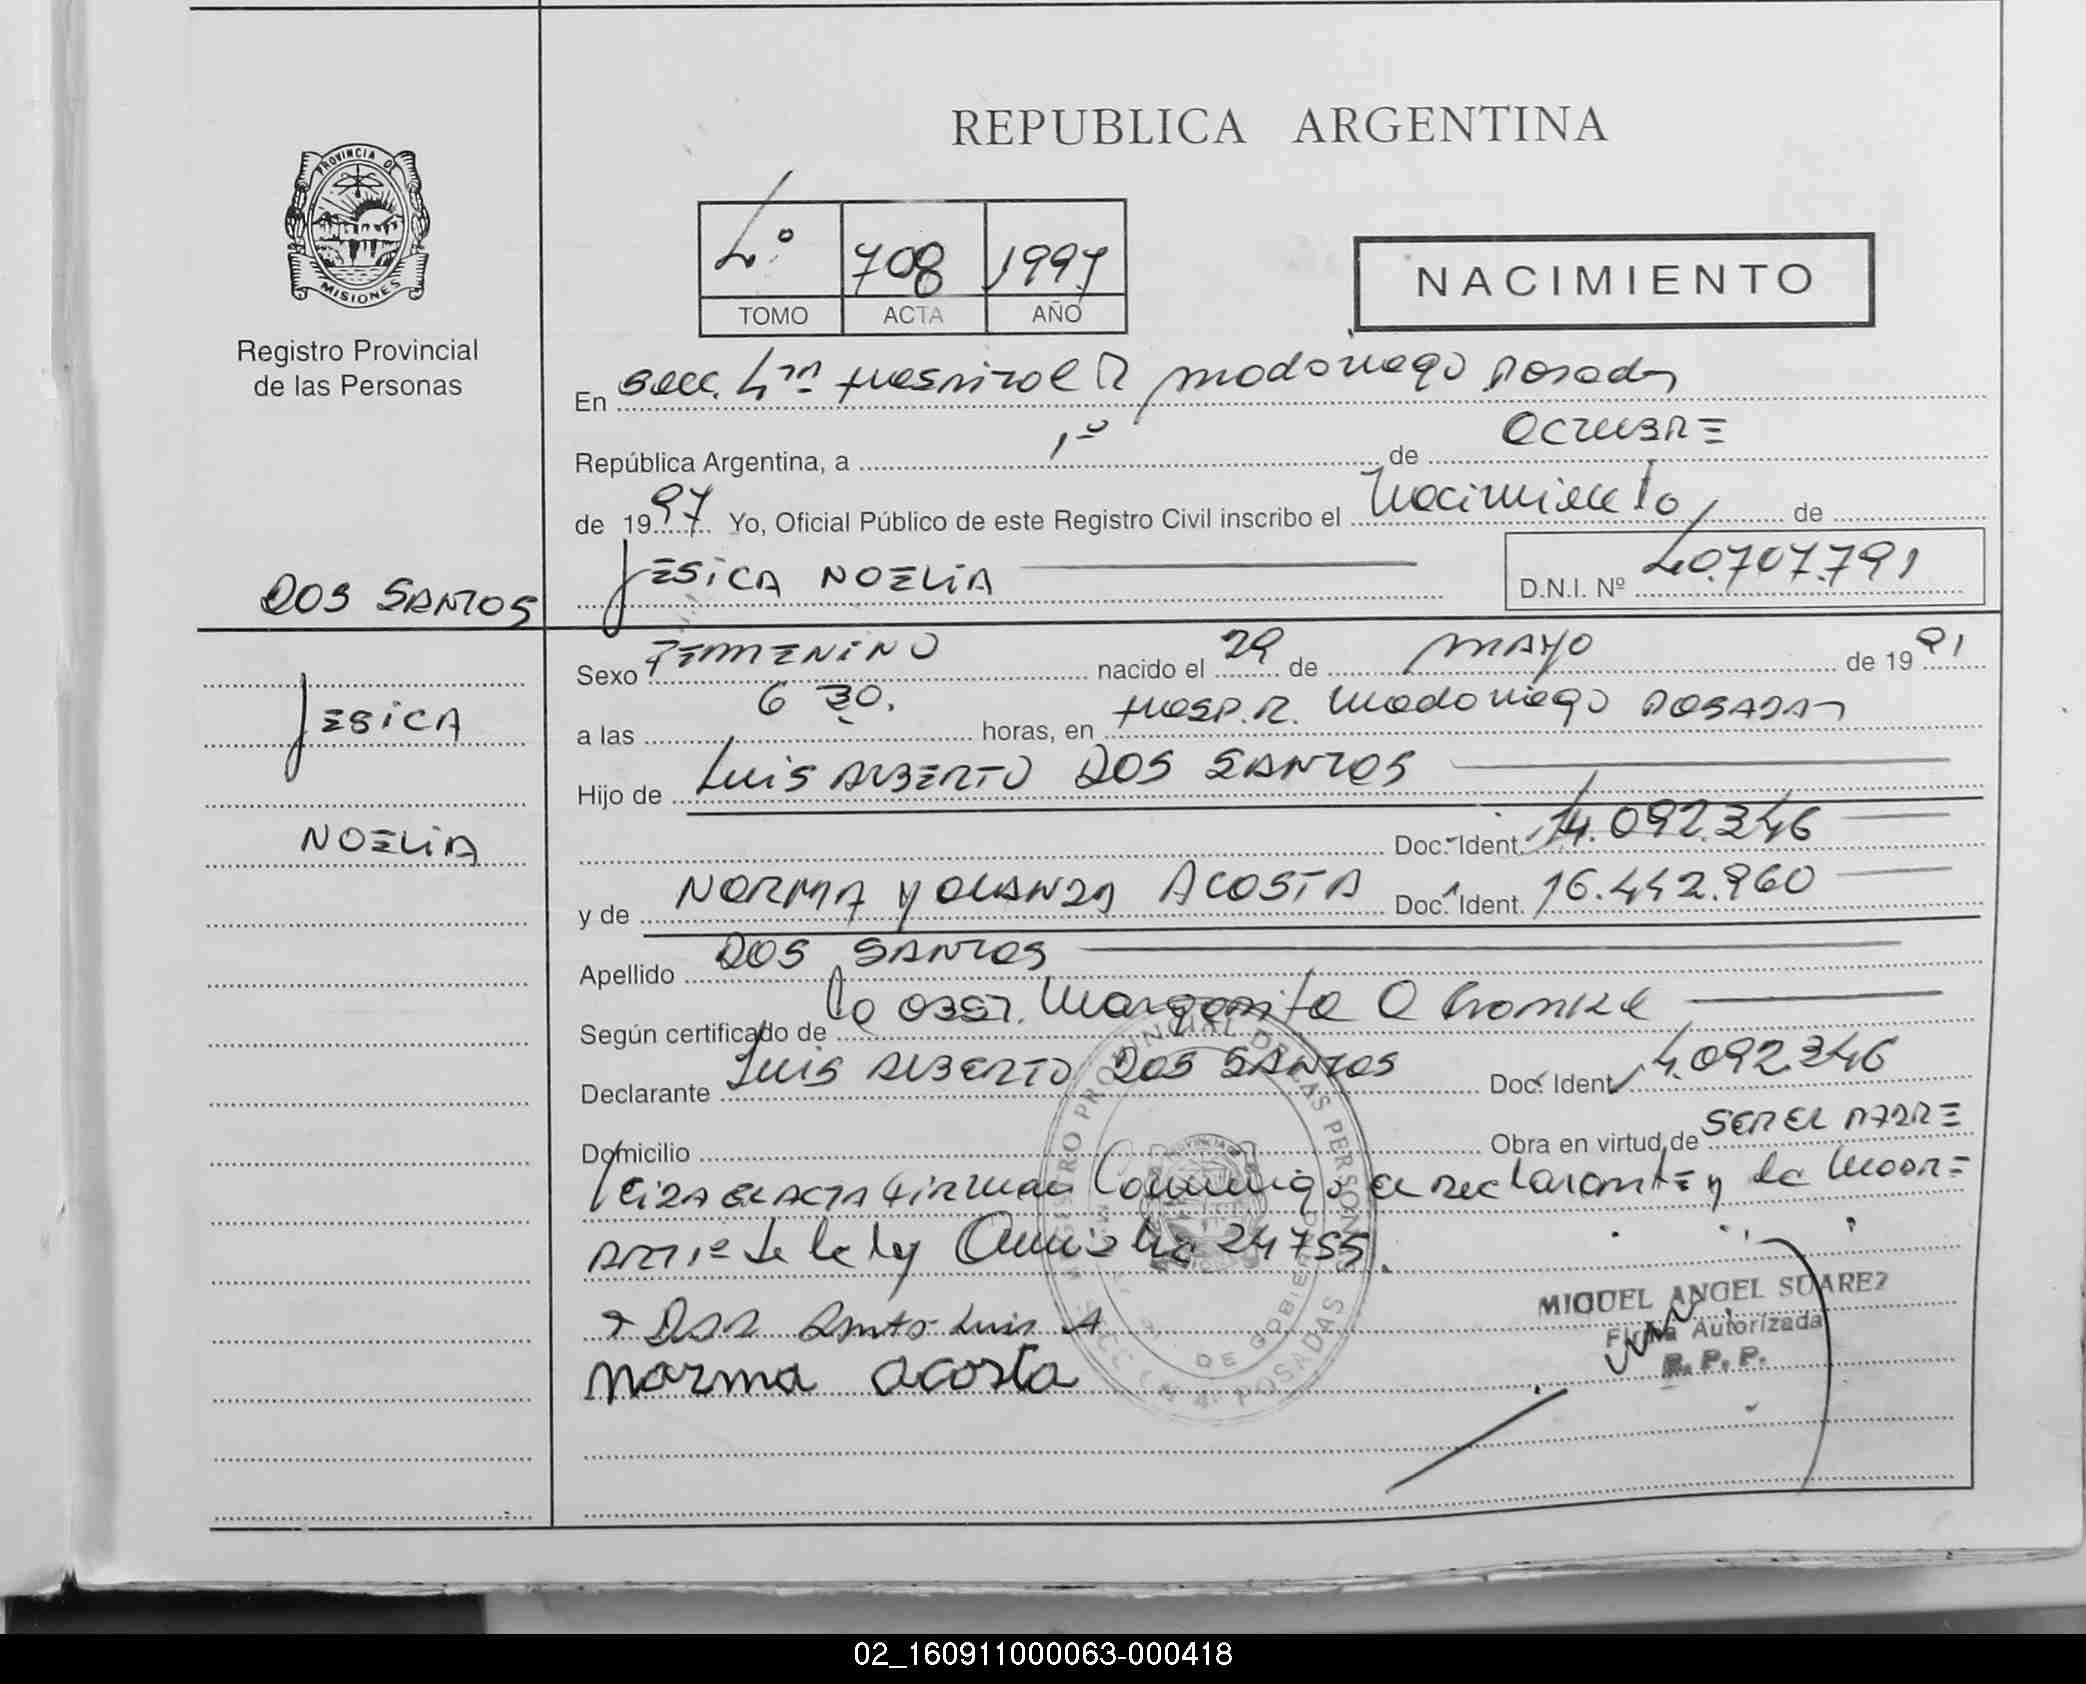 REPUBLICA ARGENTINA
PROVINCIA DE
MISIONES
Registro Provincial
de las Personas
4º 708 1997
TOMO ACTA AÑO
NACIMIENTO
En Secc. 4ta Hospital R Madariaga Posadas
República Argentina, a 1º de OCTUBRE
de 1997 Yo, Oficial Público de este Registro Civil inscribo el Nacimiento de
JESICA NOELIA
D.N.I. Nº 40.707.791
DOS SANTOS
JESICA
NOELIA
Sexo FEMENINO nacido el 29 de MAYO de 1991
a las 6 30. horas, en Hosp. R. Madariaga POSADAS
Hijo de LUIS ALBERTO DOS SANTOS
Doc. Ident. 14.092.346
y de NORMA YOLANDA ACOSTA Doc. Ident. 16.442.960
Apellido DOS SANTOS
Según certificado de la OBST. Margarita
Declarante LUIS ALBERTO DOS SANTOS Doc. Ident. 14.092.346
Domicilio Obra en virtud de SER EL PADRE
Leida el acta firman Conmigo el declarante y la Madre
ART 1º de la ley 24755.
Dos Santos Luis A
norma acosta
REGISTRO PROVINCIAL DE LAS PERSONAS
DE GOBIERNO
POSADAS
MIGUEL ANGEL SUAREZ
Firma Autorizada
R. P. P.
02_160911000063-000418